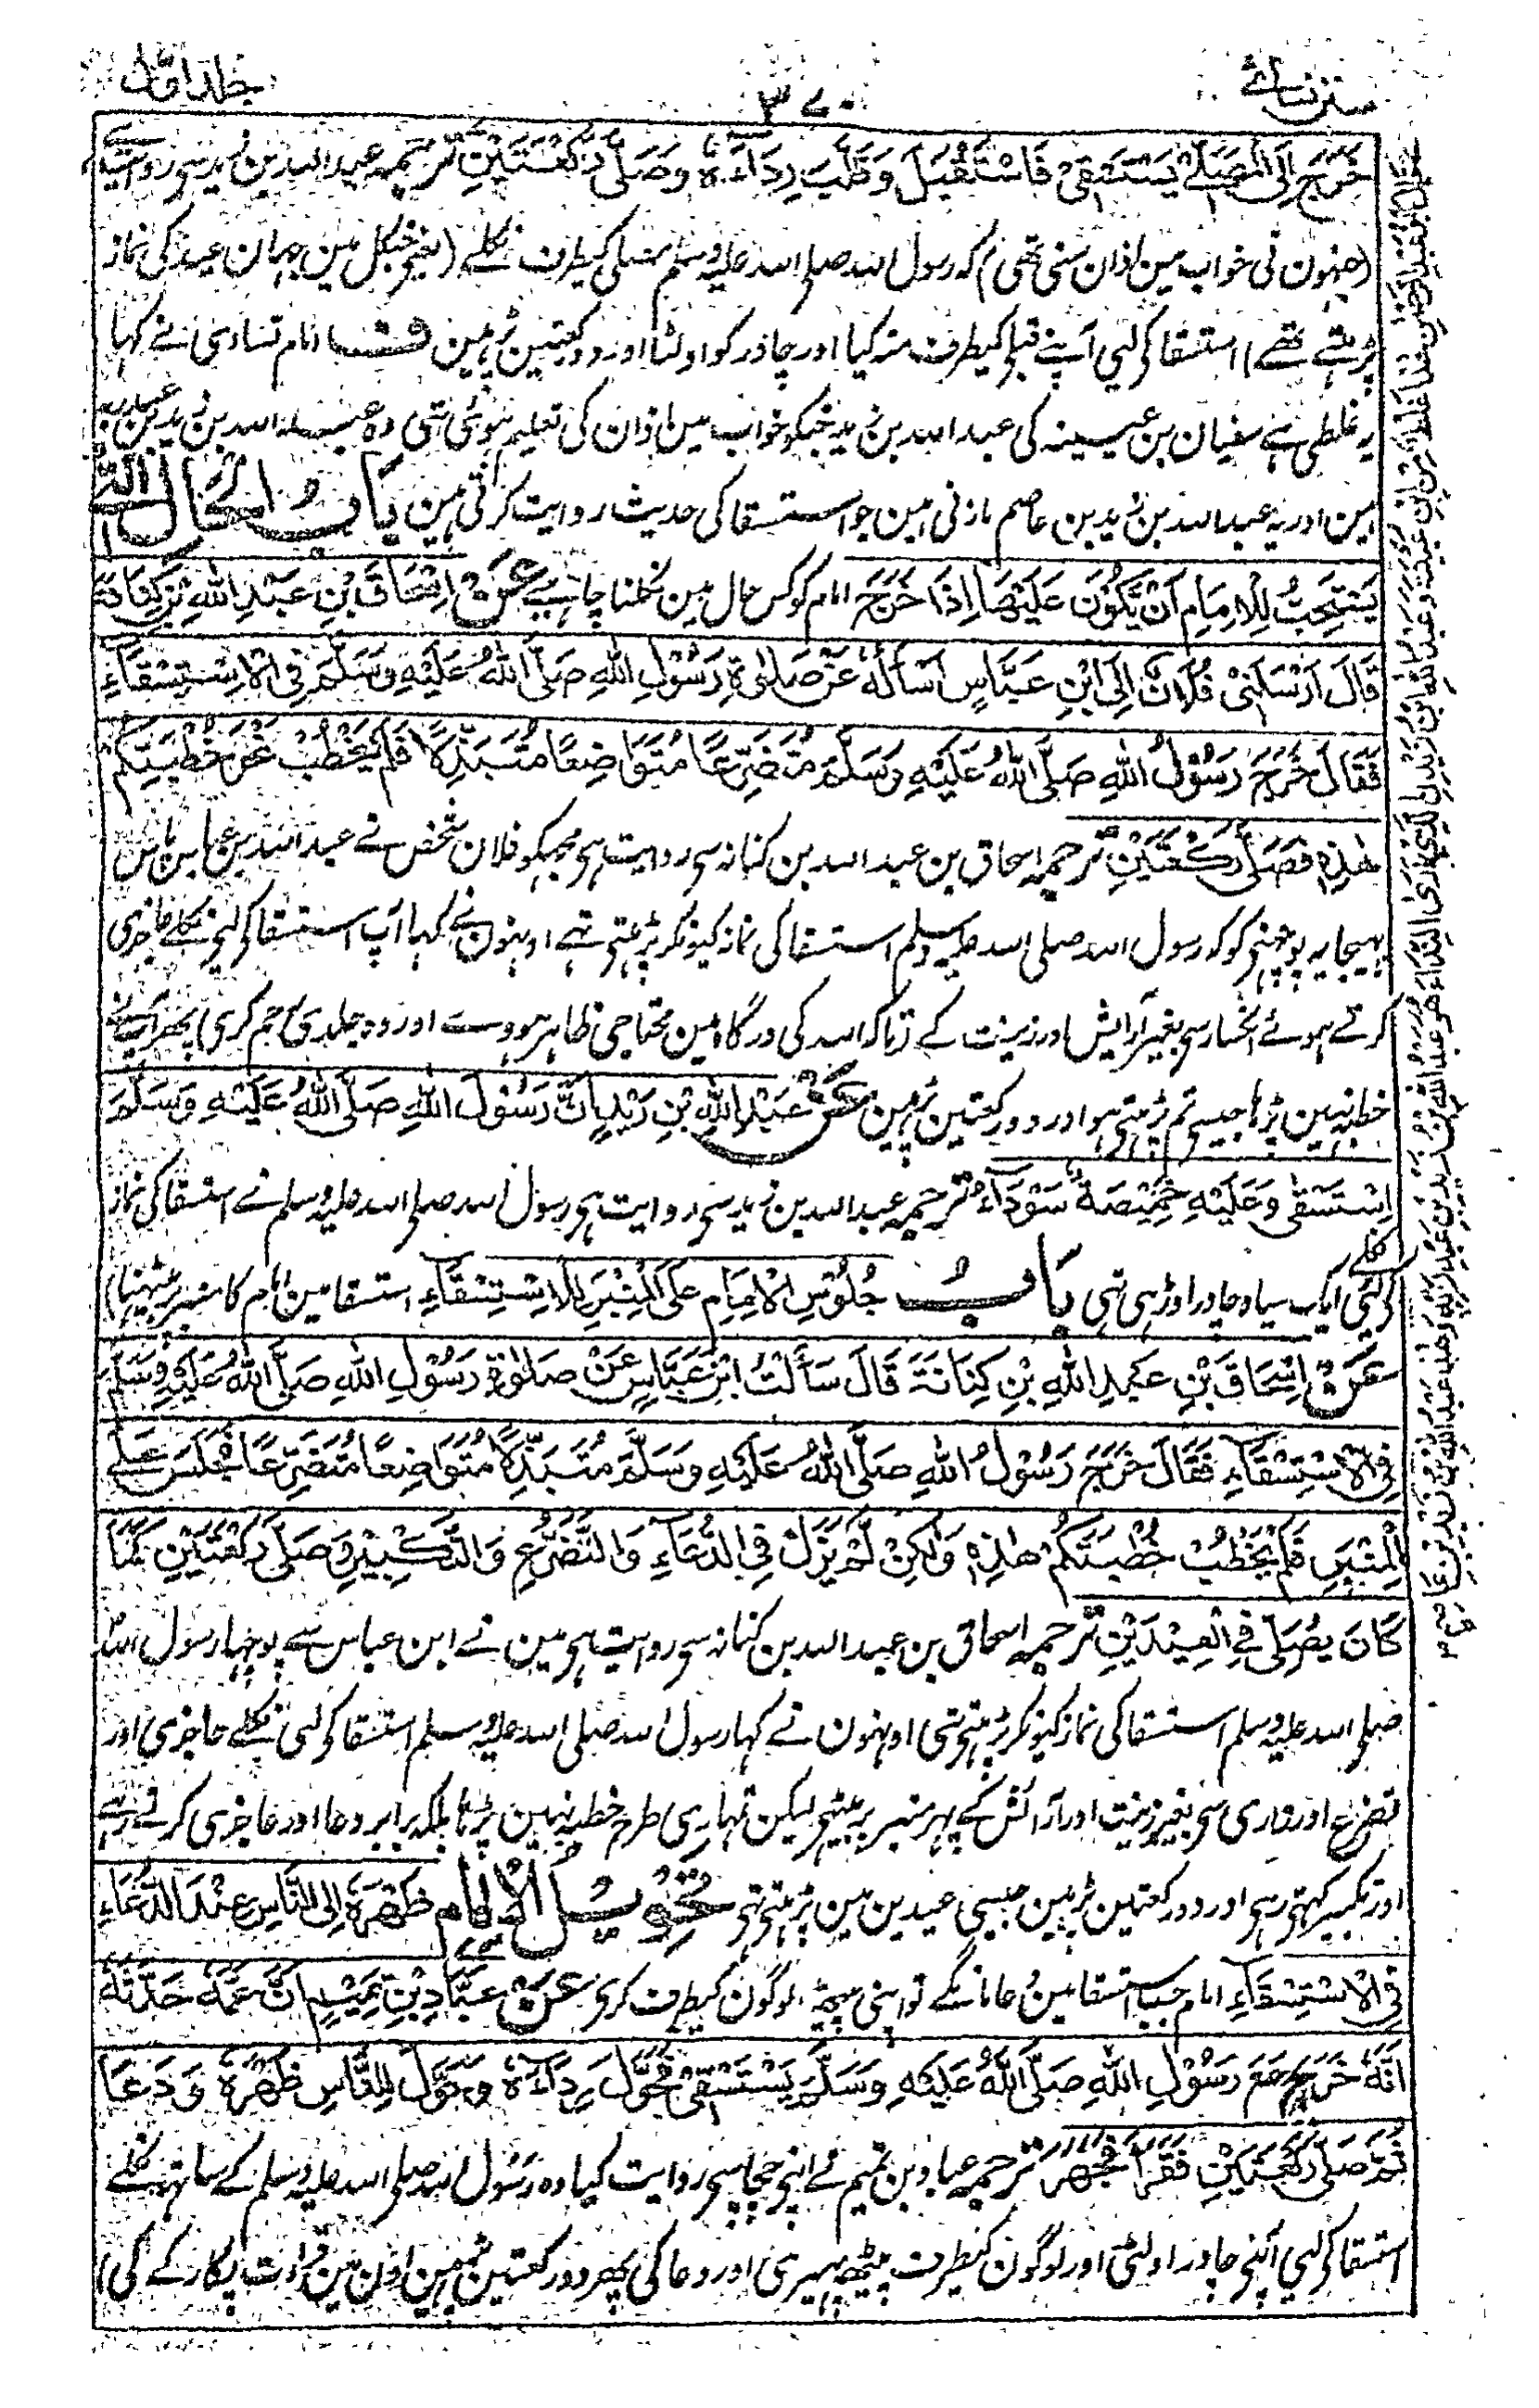 سنن نسائے
۳۷۰
جلد اول
خَرَجَ اِلَی الْمُصَلّٰے یَسْتَسْقِیْ فَاسْتَقْبَلَ وَقَلَبَ رِدَآءَهٗ وَصَلّٰی رَکْعَتَیْنِ ترجمہ عبد اللہ بن زید سے روایت ہے
(جنہون نی خواب مین اذان سنی تھی) کہ رسول اللہ صلی اللہ علیہ وسلم مصلی کیطرف نکلے (یعنی جنگل مین جہان عید کی نماز
پڑہتے تھے) استسقا کو لیی آپنے قبلہ کیطرف منہ کیا اور چادر کو اولٹا اور دو رکعتین پڑہین ف امام نسائی نے کہا
یہ غلطی ہے سفیان بن عیینہ کی عبد اللہ بن زید جنکو خواب مین اذان کی تعلیم ہوئی تہی وہ عبد اللہ بن زید بن عبد ربہ
ہین اور یہ عبد اللہ بن زید بن عاصم مازنی ہین جو استسقا کی حدیث روایت کرتی ہین بَابُ الْحَالِ الَّتِیْ
یَسْتَحِبُّ لِلْاِمَامِ اَنْ یَّکُوْنَ عَلَیْهَا اِذَا خَرَجَ امام کو کس حال مین نکلنا چاہیے عَنْ اِسْحَاقَ بْنِ عَبْدِ اللهِ بْنِ کِنَانَةَ
قَالَ اَرْسَلَنِیْ فُلَانٌ اِلَی ابْنِ عَبَّاسٍ اَسْأَلُهٗ عَنْ صَلٰوةِ رَسُوْلِ اللهِ صَلَّی اللهُ عَلَیْهِ وَسَلَّمَ فِی الْاِسْتِسْقَآءِ
فَقَالَ خَرَجَ رَسُوْلُ اللهِ صَلَّی اللهُ عَلَیْهِ وَسَلَّمَ مُتَضَرِّعًا مُتَوَاضِعًا مُتَبَذِّلًا فَلَمْ یَخْطُبْ نَحْوَ خُطْبَتِکُمْ
هٰذِهٖ فَصَلّٰی رَکْعَتَیْنِ ترجمہ اسحاق بن عبد اللہ بن کنانہ سی روایت ہی مجہکو فلان شخص نے عبد اللہ بن عباس پاس
بہیجا یہ پوچہنی کو کہ رسول اللہ صلی اللہ علیہ وسلم استسقا کی نماز کیونکر پڑہتی تہے اونہون نے کہا آپ استسقا کو لیی نکلے عاجزی
کرتے ہوئے انکساری بغیر آرایش اور زینت کے (تاکہ اللہ کی درگاہ مین محتاجی ظاہر ہووے اور وہ جلدی رحم کری) پھر آپنے
خطبہ نہین پڑہا جیسی تم پڑہتی ہو اور دو رکعتین پڑہین عَنْ عَبْدِ اللهِ بْنِ زَیْدٍ اَنَّ رَسُوْلَ اللهِ صَلَّی اللهُ عَلَیْهِ وَسَلَّمَ
اِسْتَسْقٰی وَعَلَیْهِ خَمِیْصَةٌ سَوْدَآءُ ترجمہ عبد اللہ بن زید سی روایت ہی رسول اللہ صلی اللہ علیہ وسلم نے استسقا کی نماز
کو لیی نکلے ایک سیاہ چادر اوڑہی تہی بَابُ جُلُوْسِ الْاِمَامِ عَلَی الْمِنْبَرِ لِلْاِسْتِسْقَآءِ استسقا مین امام کا منبر پر بیٹہنا
عَنْ اِسْحَاقَ بْنِ عَبْدِ اللهِ بْنِ کِنَانَةَ قَالَ سَأَلْتُ ابْنَ عَبَّاسٍ عَنْ صَلٰوةِ رَسُوْلِ اللهِ صَلَّی اللهُ عَلَیْهِ وَسَلَّمَ
فِی الْاِسْتِسْقَآءِ فَقَالَ خَرَجَ رَسُوْلُ اللهِ صَلَّی اللهُ عَلَیْهِ وَسَلَّمَ مُتَبَذِّلًا مُتَوَاضِعًا مُتَضَرِّعًا فَجَلَسَ عَلَی
الْمِنْبَرِ فَلَمْ یَخْطُبْ خُطْبَتَکُمْ هٰذِهٖ وَلٰکِنْ لَمْ یَزَلْ فِی الدُّعَآءِ وَالتَّضَرُّعِ وَالتَّکْبِیْرِ وَصَلّٰی رَکْعَتَیْنِ کَمَا
کَانَ یُصَلِّیْ فِی الْعِیْدَیْنِ ترجمہ اسحاق بن عبد اللہ بن کنانہ سی روایت ہی مین نے ابن عباس سے پوچہا رسول اللہ
صلی اللہ علیہ وسلم استسقا کی نماز کیونکر پڑہتی تہی اونہون نے کہا رسول اللہ صلی اللہ علیہ وسلم استسقا کو لیی نکلے عاجزی اور
تضرع اور زاری سی بغیر زینت اور آرائش کے پہر منبر پر بیٹہی لیکن تمہاری طرح خطبہ نہین پڑہا بلکہ برابر دعا اور عاجزی کرتے رہے
اور تکبیر کہتی رہی اور دو رکعتین پڑہین جیسی عیدین مین پڑہتی تہی تَحْوِیْلُ الْاِمَامِ ظَهْرَهٗ اِلَی النَّاسِ عِنْدَ الدُّعَآءِ
فِی الْاِسْتِسْقَآءِ امام جب استسقا مین دعا مانگے تو اپنی پیٹہہ لوگون کیطرف کری عَنْ عَبَّادِ بْنِ تَمِیْمٍ اَنَّ عَمَّهٗ حَدَّثَهٗ
اَنَّهٗ خَرَجَ مَعَ رَسُوْلِ اللهِ صَلَّی اللهُ عَلَیْهِ وَسَلَّمَ یَسْتَسْقِیْ فَحَوَّلَ رِدَآءَهٗ وَحَوَّلَ لِلنَّاسِ ظَهْرَهٗ وَدَعَا
ثُمَّ صَلّٰی رَکْعَتَیْنِ فَقَرَأَ فَجَهَرَ ترجمہ عباد بن تمیم نے اپنی چچا سی روایت کیا وہ رسول اللہ صلی اللہ علیہ وسلم کے ساتہہ نکلے
استسقا کو لیی آپنی چادر اولٹی اور لوگون کیطرف پیٹھہ پہیری اور دعا کی پھر دو رکعتین پڑہین اون مین قرأت پکار کے کی